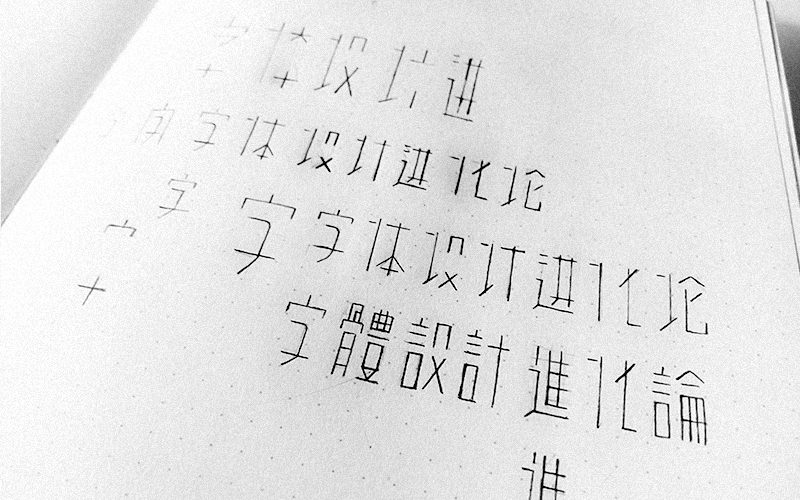 字体设计進
字字体设计进化论
字
字字体设计进化论
字體設計進化論
進